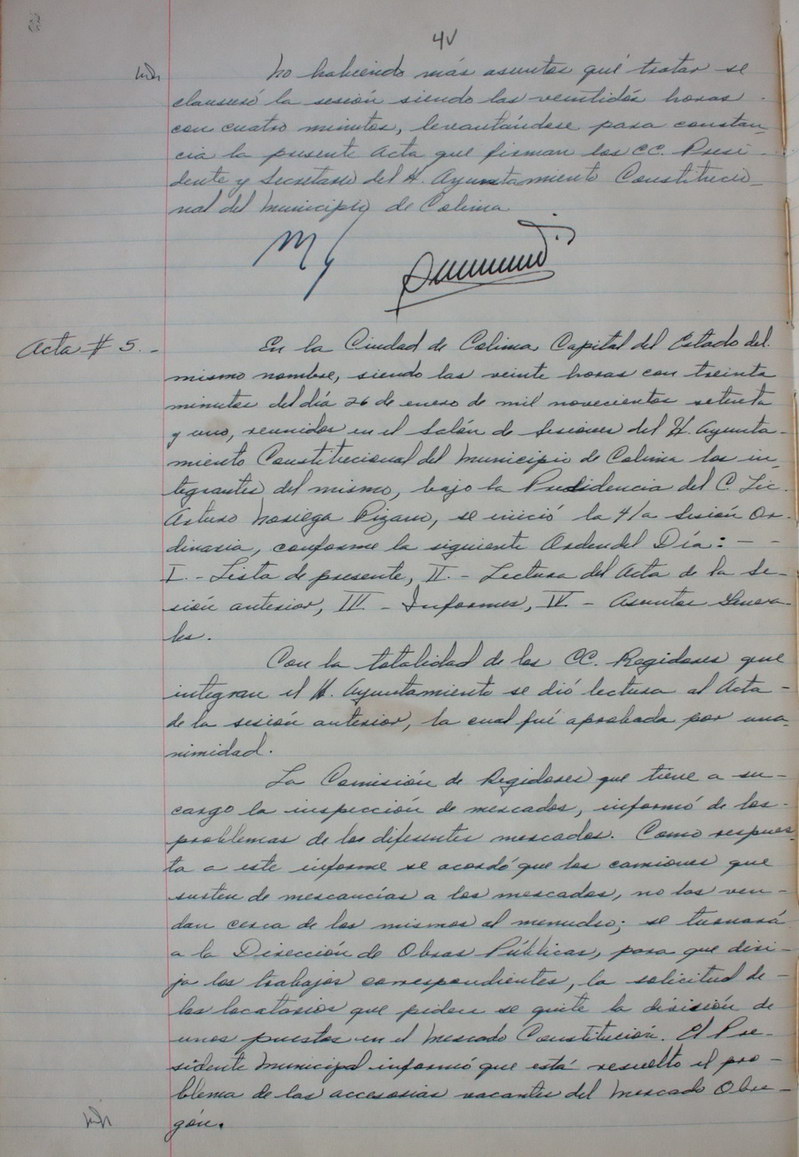 4V
No habiendo más asuntos qué tratar se
clausuró la sesión siendo las veintidós horas
con cuatro minutos, levantándose para constan-
cia la presente Acta que firman los CC. Presi-
dente y Secretario del H. Ayuntamiento Constitucio-
nal del Municipio de Colima
Acta # 5.-
En la Ciudad de Colima Capital del Estado del
mismo nombre, siendo las veinte horas con treinta
minutos del día 26 de enero de mil novecientos setenta
y uno, reunidos en el Salón de Sesiones del H. Ayunta-
miento Constitucional del Municipio de Colima los in-
tegrantes del mismo, bajo la Presidencia del C. Lic.
Arturo Noriega Pizano, se inició la 4/a Sesión Or-
dinaria, conforme la siguiente Orden del Día: - -
I.- Lista de presente, II.- Lectura del Acta de la Se-
sión anterior, III - Informes, IV - Asuntos Genera-
les.
Con la totalidad de los CC. Regidores que
integran el H. Ayuntamiento se dió lectura al Acta -
de la sesión anterior, la cual fué aprobada por una-
nimidad.
La Comisión de Regidores que tiene a su -
cargo la inspección de mercados, informó de los -
problemas de los diferentes mercados. Como respues-
ta a este informe se acordó que los camiones que
surten de mercancías a los mercados, no las ven-
dan cerca de los mismos al menudeo; se turnará
a la Dirección de Obras Públicas, para que diri-
ja los trabajos correspondientes, la solicitud de -
los locatarios que piden se quite la división de
unos puestos en el Mercado Constitución. El Pre-
sidente Municipal informó que está resuelto el pro-
blema de las accesorias vacantes del Mercado Obre-
gón.